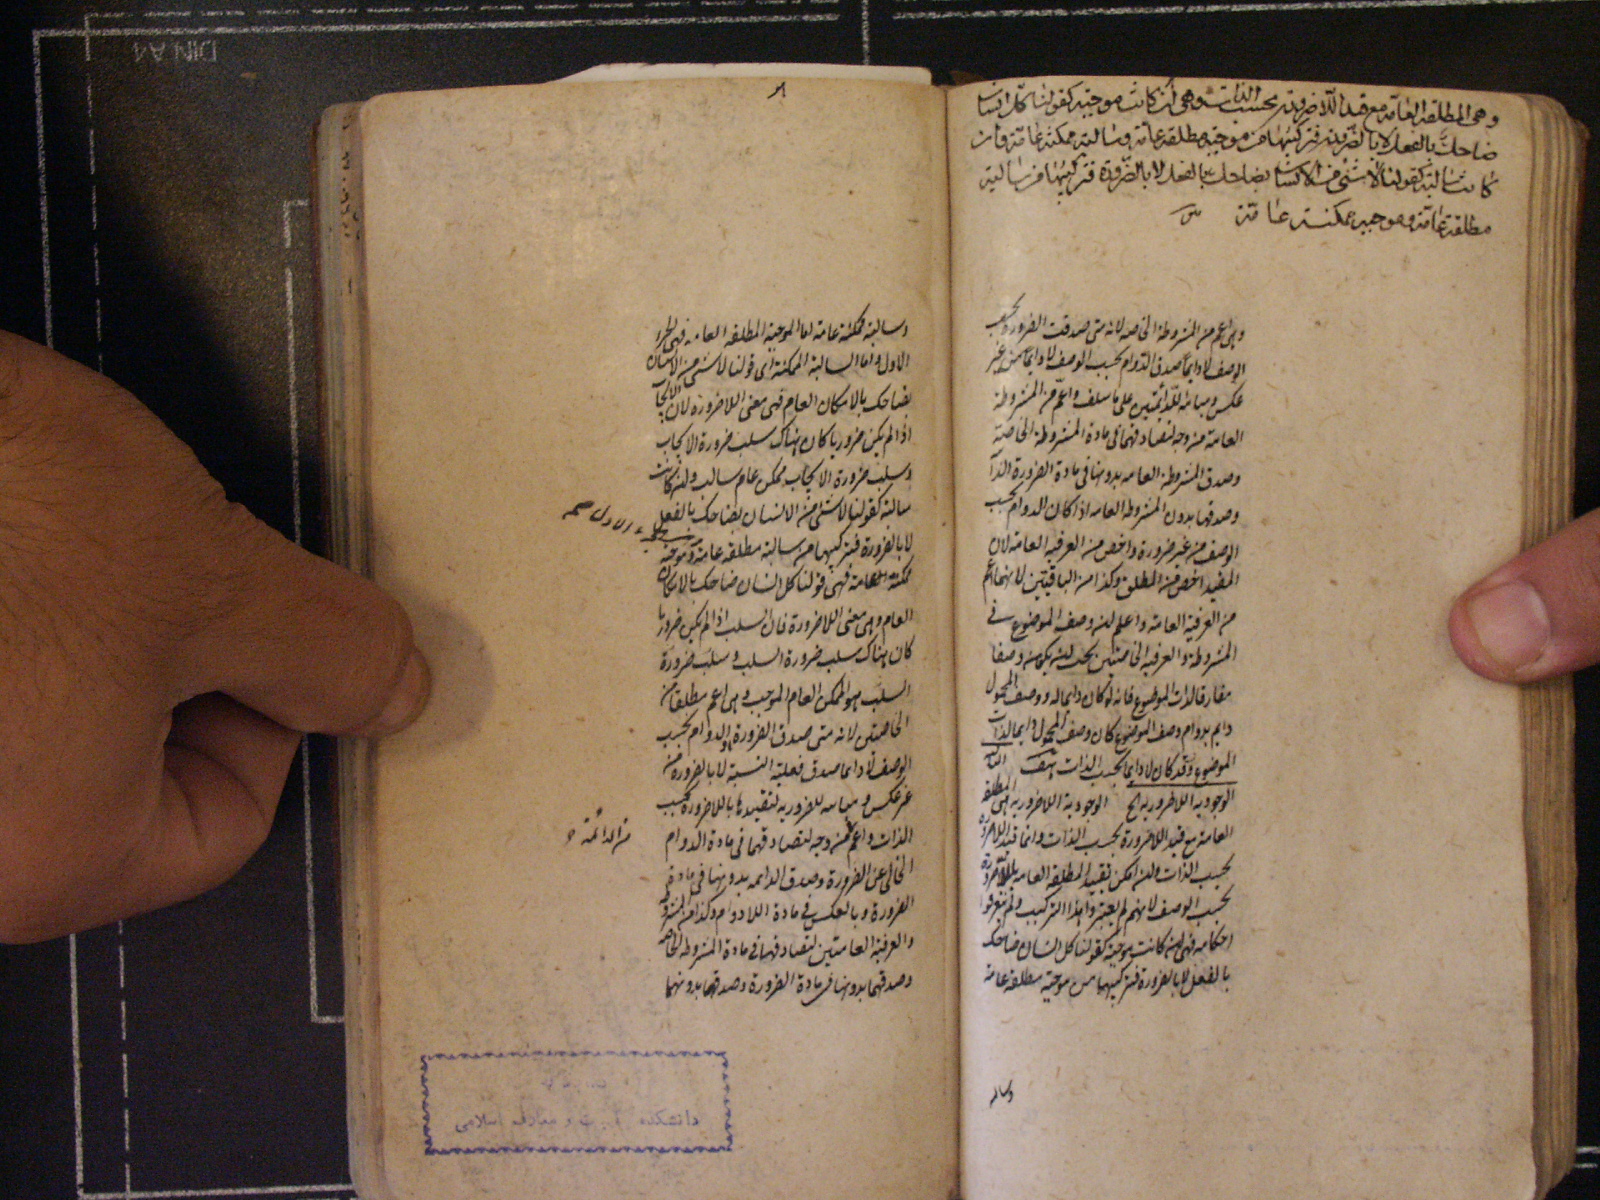 وهى المطلقة العامة مع قيد اللاضرورة بحسب الذات وهى ان كانت موجبة كقولنا كل انسان
ضاحك بالفعل لا بالضرورة فتركيبها من موجبة مطلقة عامة وسالبة ممكنة عامة وان
كانت سالبة كقولنا لا شئ من الانسان بضاحك بالفعل لا بالضرورة فتركيبها من سالبة
مطلقة عامة وموجبة ممكنة عامة
وهى اعم من المشروطة الخاصة لانه متى صدقت الضرورة بحسب
الوصف لا دايما صدق الدوام بحسب الوصف لا دايما من غير
عكس ومباينة للدائمتين على ما سلف واعم من المشروطة
العامة من وجه لتصادقهما فى مادة المشروطة الخاصة
وصدق المشروطة العامه بدونها فى مادة الضرورة
وصدقها بدون المشروطة العامه اذا كان الدوام بحسب
الوصف من غير ضرورة واخص من العرفية العامة لان
المقيد اخص من المطلق وكذا من الباقيتين لانهما اعم
من العرفية العامة واعلم ان وصف الموضوع فى
المشروطة والعرفية الخاصتين يجب ان يكون وصفا
مفارقا لذات الموضوع فانه لو كان دايما له ووصف المحمول
دايم بدوام وصف الموضوع كان وصف المحمول دايما لذات
الموضوع وقد كان لا دايما بحسب الذات هف
الوجودية اللاضرورية الخ الوجودية اللاضرورية هى المطلقة
العامة مع قيد اللاضرورة بحسب الذات وانما قيد اللاضرورة
بحسب الذات وان امكن تقييد المطلقة العامه باللاضرورة
بحسب الوصف لانهم لم يعتبروا هذا التركيب ولم يتعرفوا
احكامه فهى ان كانت موجبة كقولنا كل انسان ضاحك
بالفعل لا بالضرورة فتركيبها من موجبة مطلقة عامة
وسالبه
وسالبة ممكنة عامة اما الموجبة المطلقة العامه فهى الجزء
الاول واما السالبة الممكنة اى قولنا لا شئ من الانسان
بضاحك بالامكان العام فهى معنى اللاضرورة لان الايجاب
اذا لم يكن ضروريا كان هناك سلب ضرورة الايجاب
وسلب ضرورة الايجاب ممكن عام سالب وان كانت
سالبة كقولنا لا شئ من الانسان بضاحك بالفعل
لا بالضرورة فتركيبها من سالبة مطلقة عامة وموجبة
ممكنة عامة فهى قولنا كل انسان ضاحك بالامكان
العام وهى معنى اللاضرورة فان السلب اذا لم يكن ضروريا
كان هناك سلب ضرورة السلب وسلب ضرورة
السلب هو الممكن العام الموجب وهى اعم مطلقا من
الخاصتين لانه متى صدق الضرورة او الدوام بحسب
الوصف لا دايما صدق فعلية النسبة لا بالضرورة من
غير عكس ومباينة للضرورية لتقييدها باللاضرورة بحسب
الذات واعم من وجه لتصادقهما فى مادة الدوام
من الدائمة
الخالى عن الضرورة وصدق الدائمه بدونها فى مادة
الضرورة وبالعكس فى مادة اللادوام وكذا من المشروطة
والعرفية العامتين لتصادقهما فى مادة المشروطة الخاصة
وصدقهما بدونها فى مادة الضرورة وصدقها بدونهما
دانشکده
و معارف اسلامی